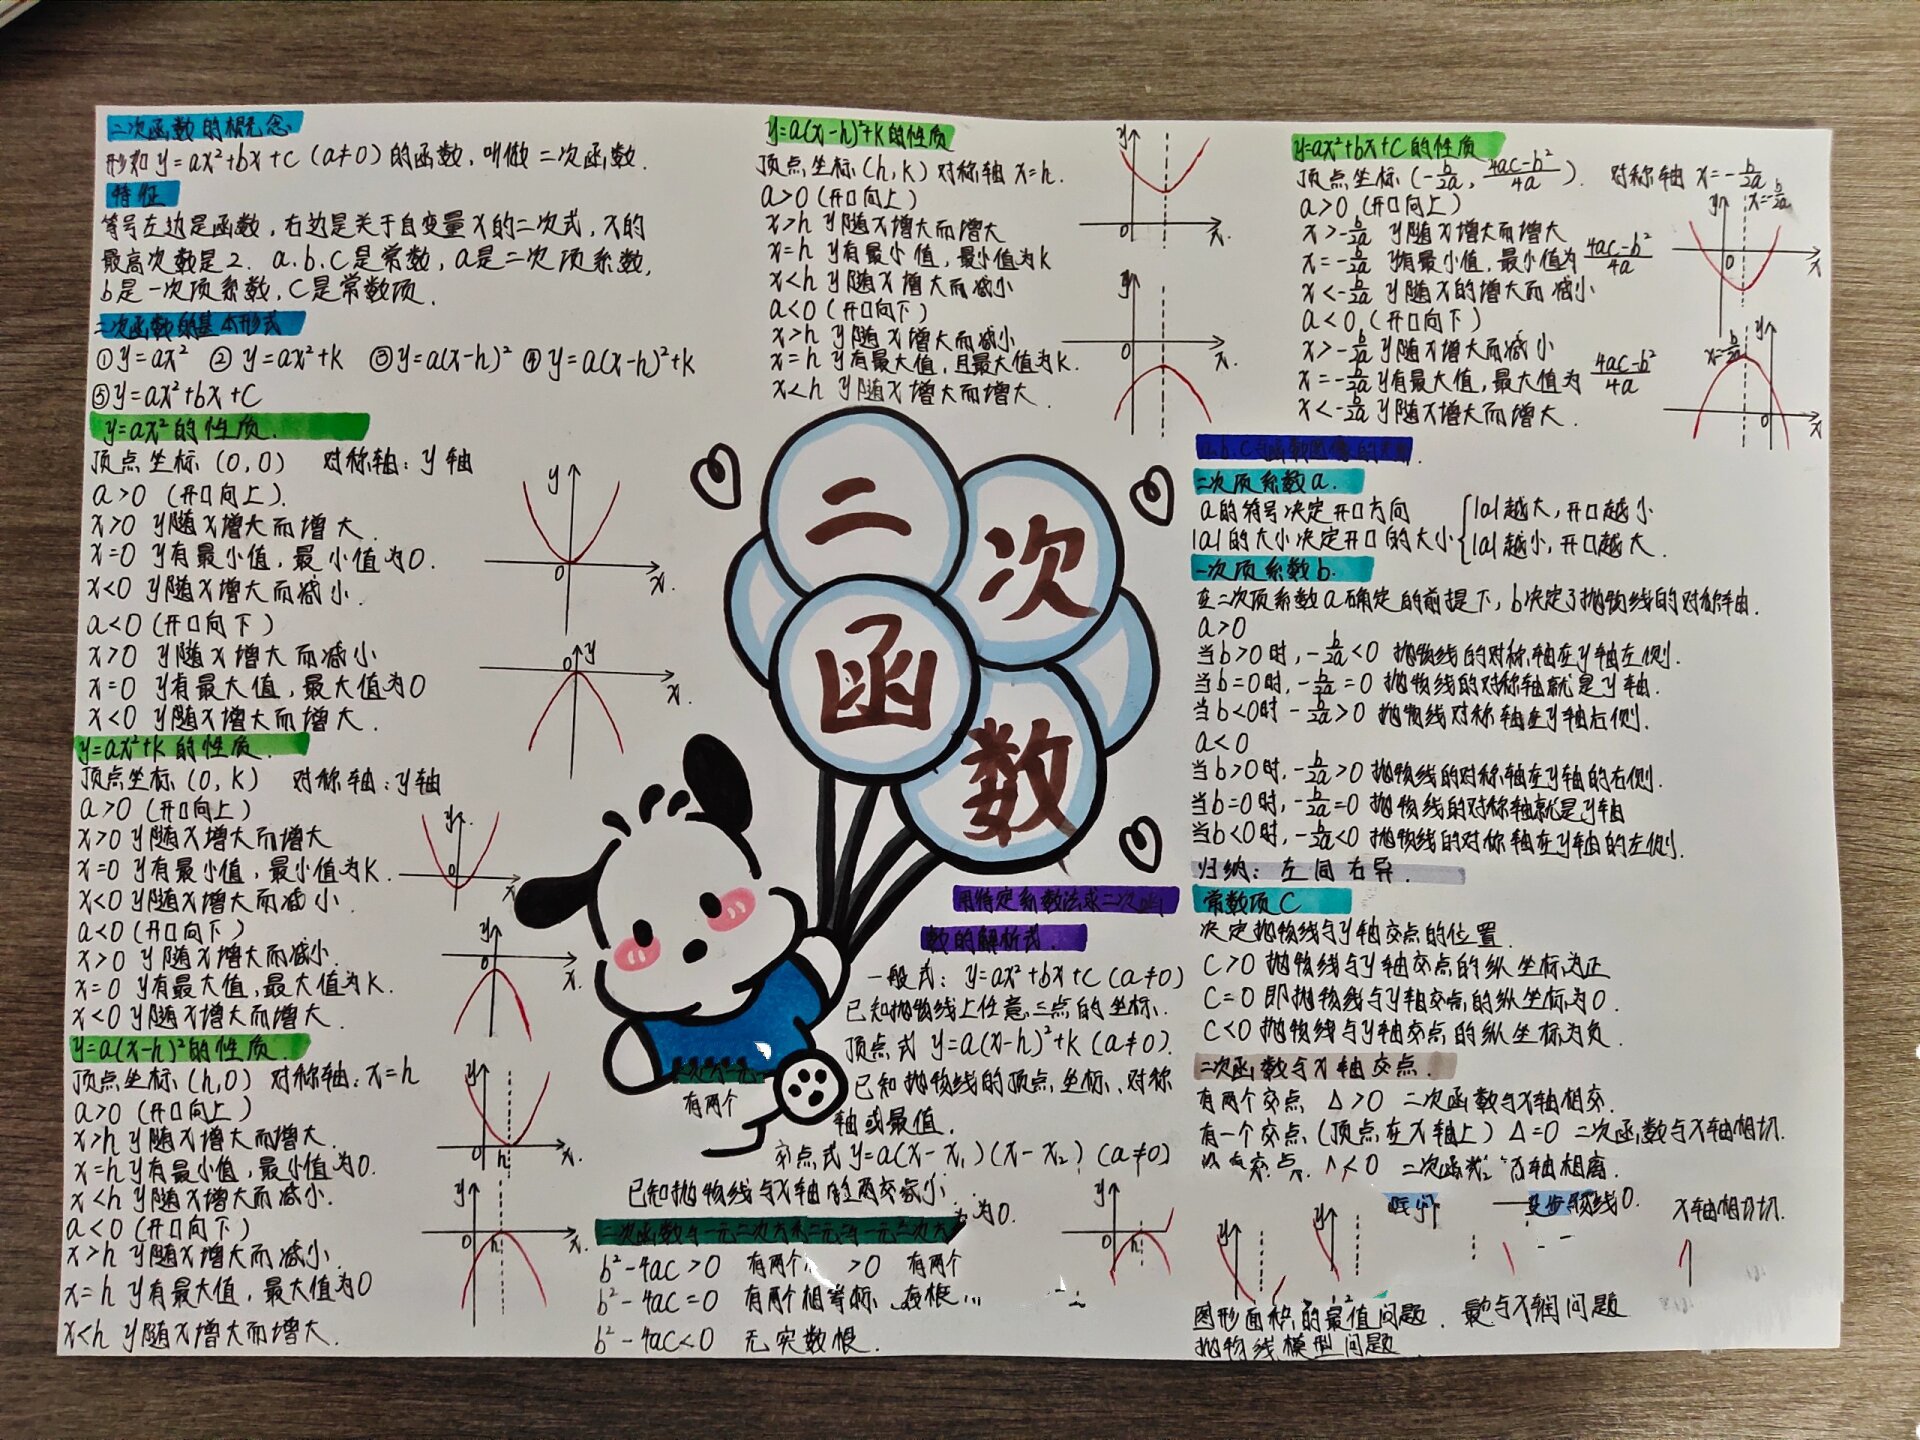 二次函数的概念
形如 y=ax²+bx+c (a≠0) 的函数,叫做二次函数.
特征
等号左边是函数,右边是关于自变量x的二次式,x的
最高次数是2. a.b.c是常数,a是二次项系数,
b是一次项系数,c是常数项.
二次函数的基本形式
①y=ax² ②y=ax²+k ③y=a(x-h)² ④y=a(x-h)²+k
⑤y=ax²+bx+c
y=ax²的性质.
顶点坐标(0,0) 对称轴:y轴
a>0 (开口向上).
x>0 y随x增大而增大.
x=0 y有最小值,最小值为0.
x<0 y随x增大而减小.
a<0(开口向下)
x>0 y随x增大而减小
x=0 y有最大值,最大值为0
x<0 y随x增大而增大.
y x. 0
0 y x.
y=ax²+k的性质.
顶点坐标(0,k) 对称轴:y轴
a>0(开口向上)
x>0 y随x增大而增大
x=0 y有最小值,最小值为k.
x<0 y随x增大而减小.
a<0(开口向下)
x>0 y随x增大而减小.
x=0 y有最大值,最大值为k.
x<0 y随x增大而增大.
y 0 x
y 0 x.
y=a(x-h)²的性质.
顶点坐标(h,0) 对称轴:x=h
a>0(开口向上)
x>h y随x增大而增大.
x=h y有最小值,最小值为0.
x<h y随x增大而减小.
a<0(开口向下)
x>h y随x增大而减小.
x=h y有最大值,最大值为0
x<h y随x增大而增大.
y 0 h x.
y 0 h x.
y=a(x-h)²+k的性质
顶点坐标(h,k) 对称轴x=h.
a>0(开口向上)
x>h y随x增大而增大
x=h y有最小值,最小值为k
x<h y随x增大而减小
a<0(开口向下)
x>h y随x增大而减小
x=h y有最大值,且最大值为k.
x<h y随x增大而增大.
y 0 x.
y 0 x.
二次函数
用待定系数法求二次函
数的解析式.
一般式: y=ax²+bx+c (a≠0)
已知抛物线上任意三点的坐标.
顶点式 y=a(x-h)²+k (a≠0).
已知抛物线的顶点坐标、对称
轴或最值.
交点式y=a(x-x₁)(x-x₂) (a≠0)
已知抛物线与x轴的两交减小.
有两个
为0.
二次函数与一元二次方
b²-4ac>0 有两个 >0 有两个
b²-4ac=0 有两个相等
b²-4ac<0 无实数根.
y 0 h
y=ax²+bx+c的性质
顶点坐标(-b/2a, 4ac-b²/4a). 对称轴 x=-b/2a
a>0(开口向上)
x>-b/2a y随x增大而增大
x=-b/2a y有最小值,最小值为 4ac-b²/4a
x<-b/2a y随x的增大而减小
a<0(开口向下)
x>-b/2a y随x增大而减小
x=-b/2a y有最大值,最大值为 4ac-b²/4a
x<-b/2a y随x增大而增大.
y x=-b/2a 0 x
x=-b/2a y 0 x
a.b.c与函数图像的
二次项系数a.
a的符号决定开口方向
|a|的大小决定开口的大小{|a|越大,开口越小
|a|越小,开口越大.
一次项系数b.
在二次项系数a确定的前提下,b决定了抛物线的对称轴.
a>0
当b>0时,-b/2a<0 抛物线的对称轴在y轴左侧.
当b=0时,-b/2a=0 抛物线的对称轴就是y轴.
当b<0时-b/2a>0 抛物线对称轴在y轴右侧.
a<0
当b>0时,-b/2a>0 抛物线的对称轴在y轴的右侧.
当b=0时,-b/2a=0 抛物线的对称轴就是y轴
当b<0时,-b/2a<0 抛物线的对称轴在y轴的左侧.
归纳:左同右异.
常数项C
决定抛物线与y轴交点的位置.
C>0 抛物线与y轴交点的纵坐标为正
C=0 即抛物线与y轴交点的纵坐标为0.
C<0 抛物线与y轴交点的纵坐标为负.
二次函数与x轴交点.
有两个交点 Δ>0 二次函数与x轴相交.
有一个交点(顶点在x轴上) Δ=0 二次函数与x轴相切.
<0 二次函 轴相离.
线0.
x轴相切.
y y
图形面积的最值问题. 问题
抛物线模型问题